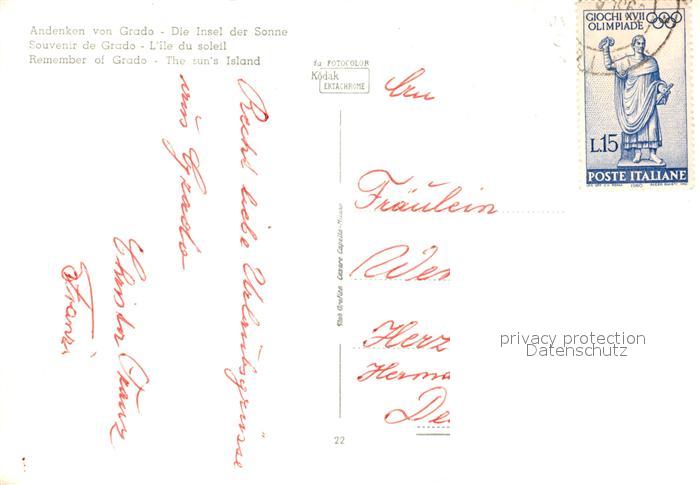 Andenkon von Grado - Die Insel der Sonne
Souvenir de Grado - L'île du soleil
Remember of Grado - The sun's Island
fa FOTOCOLOR
Kodak
EKTACHROME
GIOCHI XVII
OLIMPIADE
L.15
POSTE ITALIANE
1960
Recht liebe Urlaubsgrüsse
aus Grado
Franz
Franzi
Stab Grafico Cesare Capello - Milano
An
Fräulein
Herz
Herma
privacy protection
Datenschutz
22